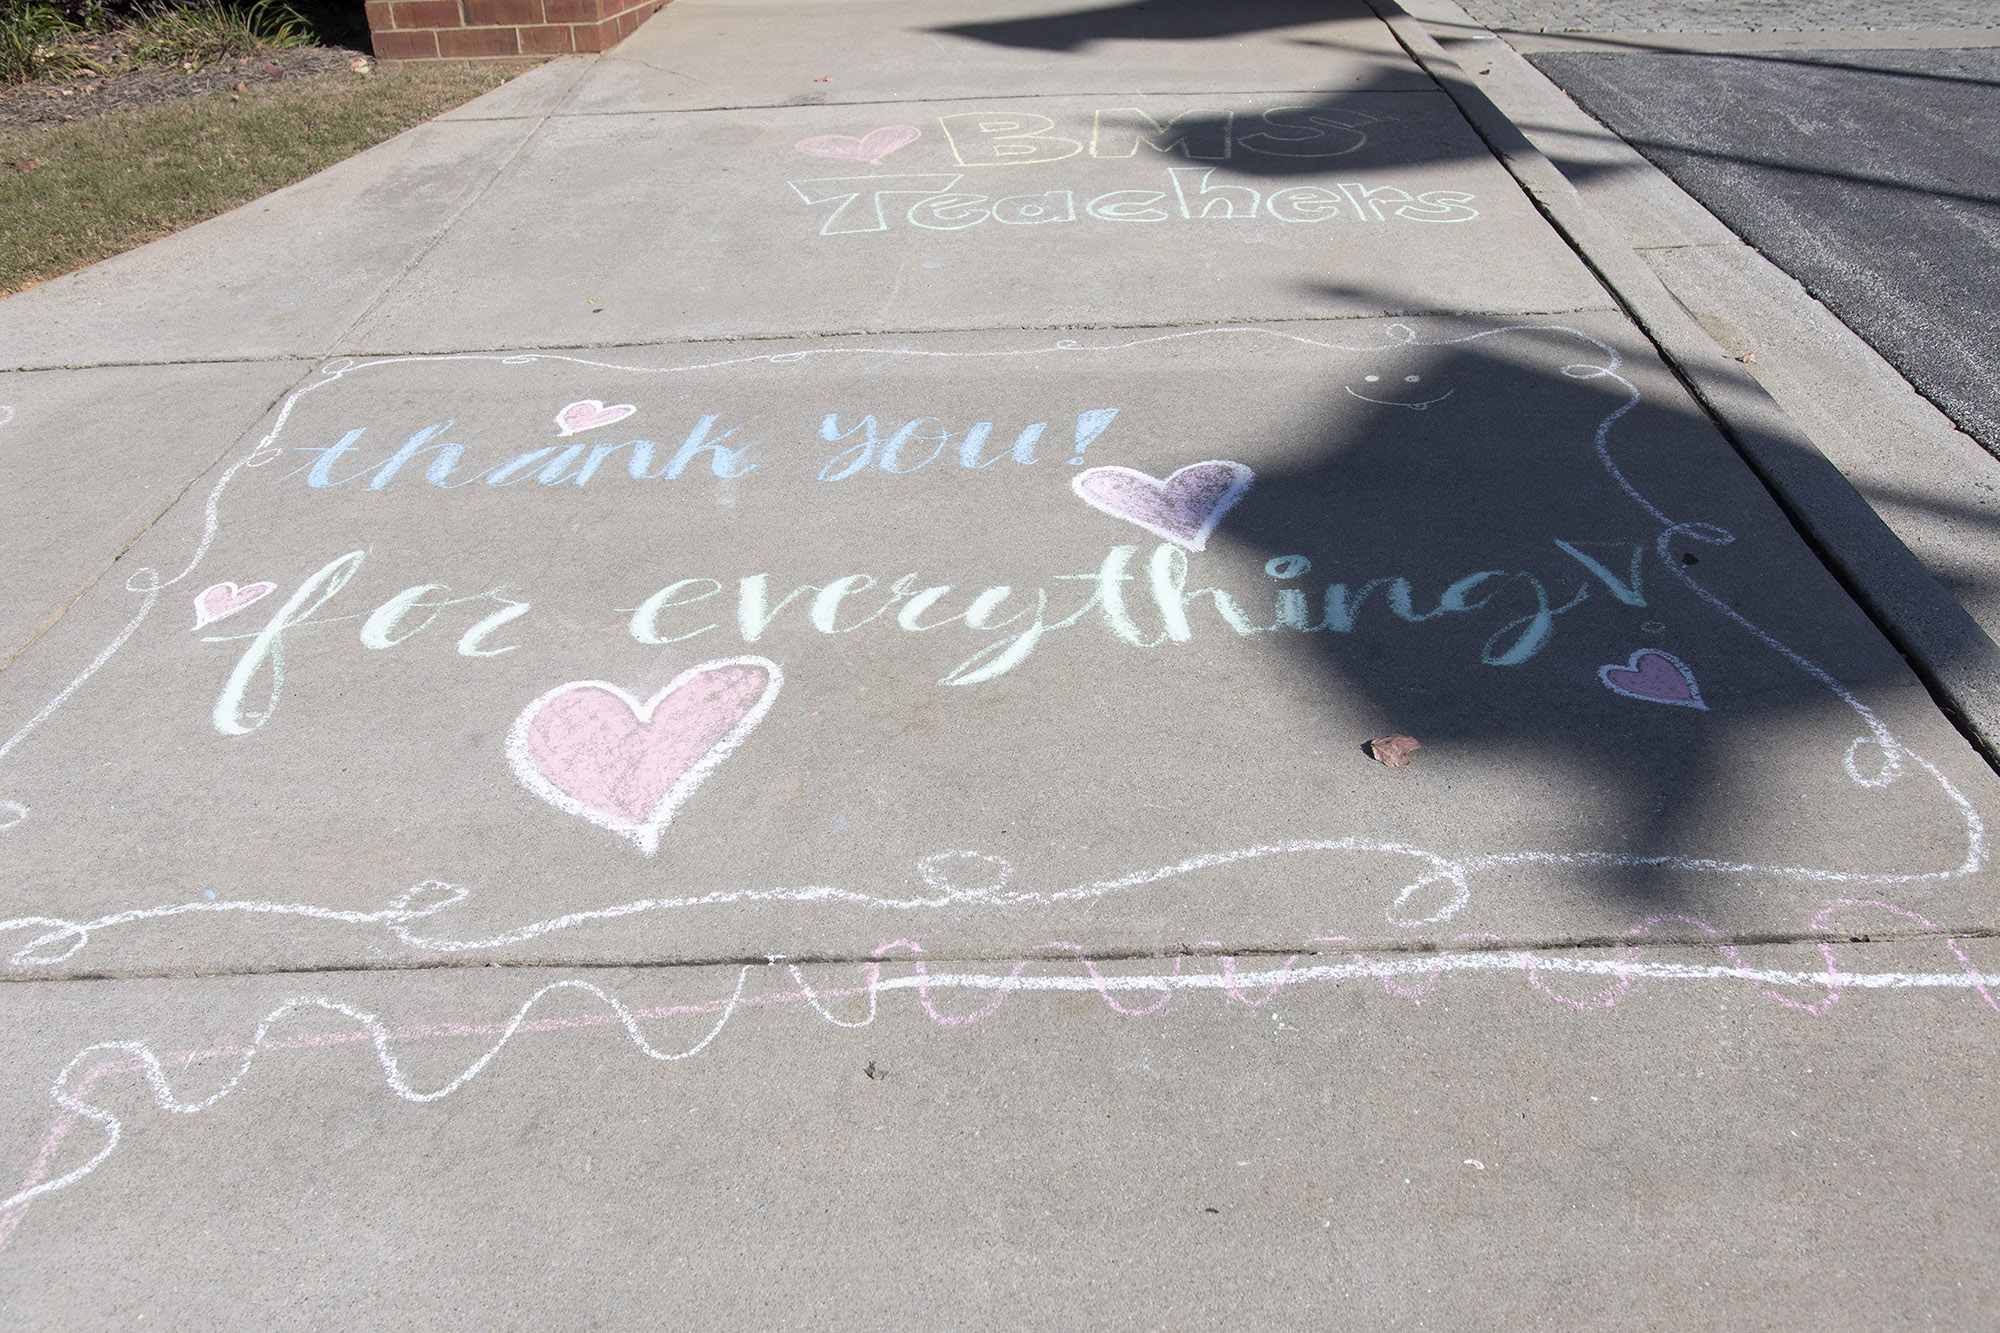 BMS
Teachers
thank you!
for everything!